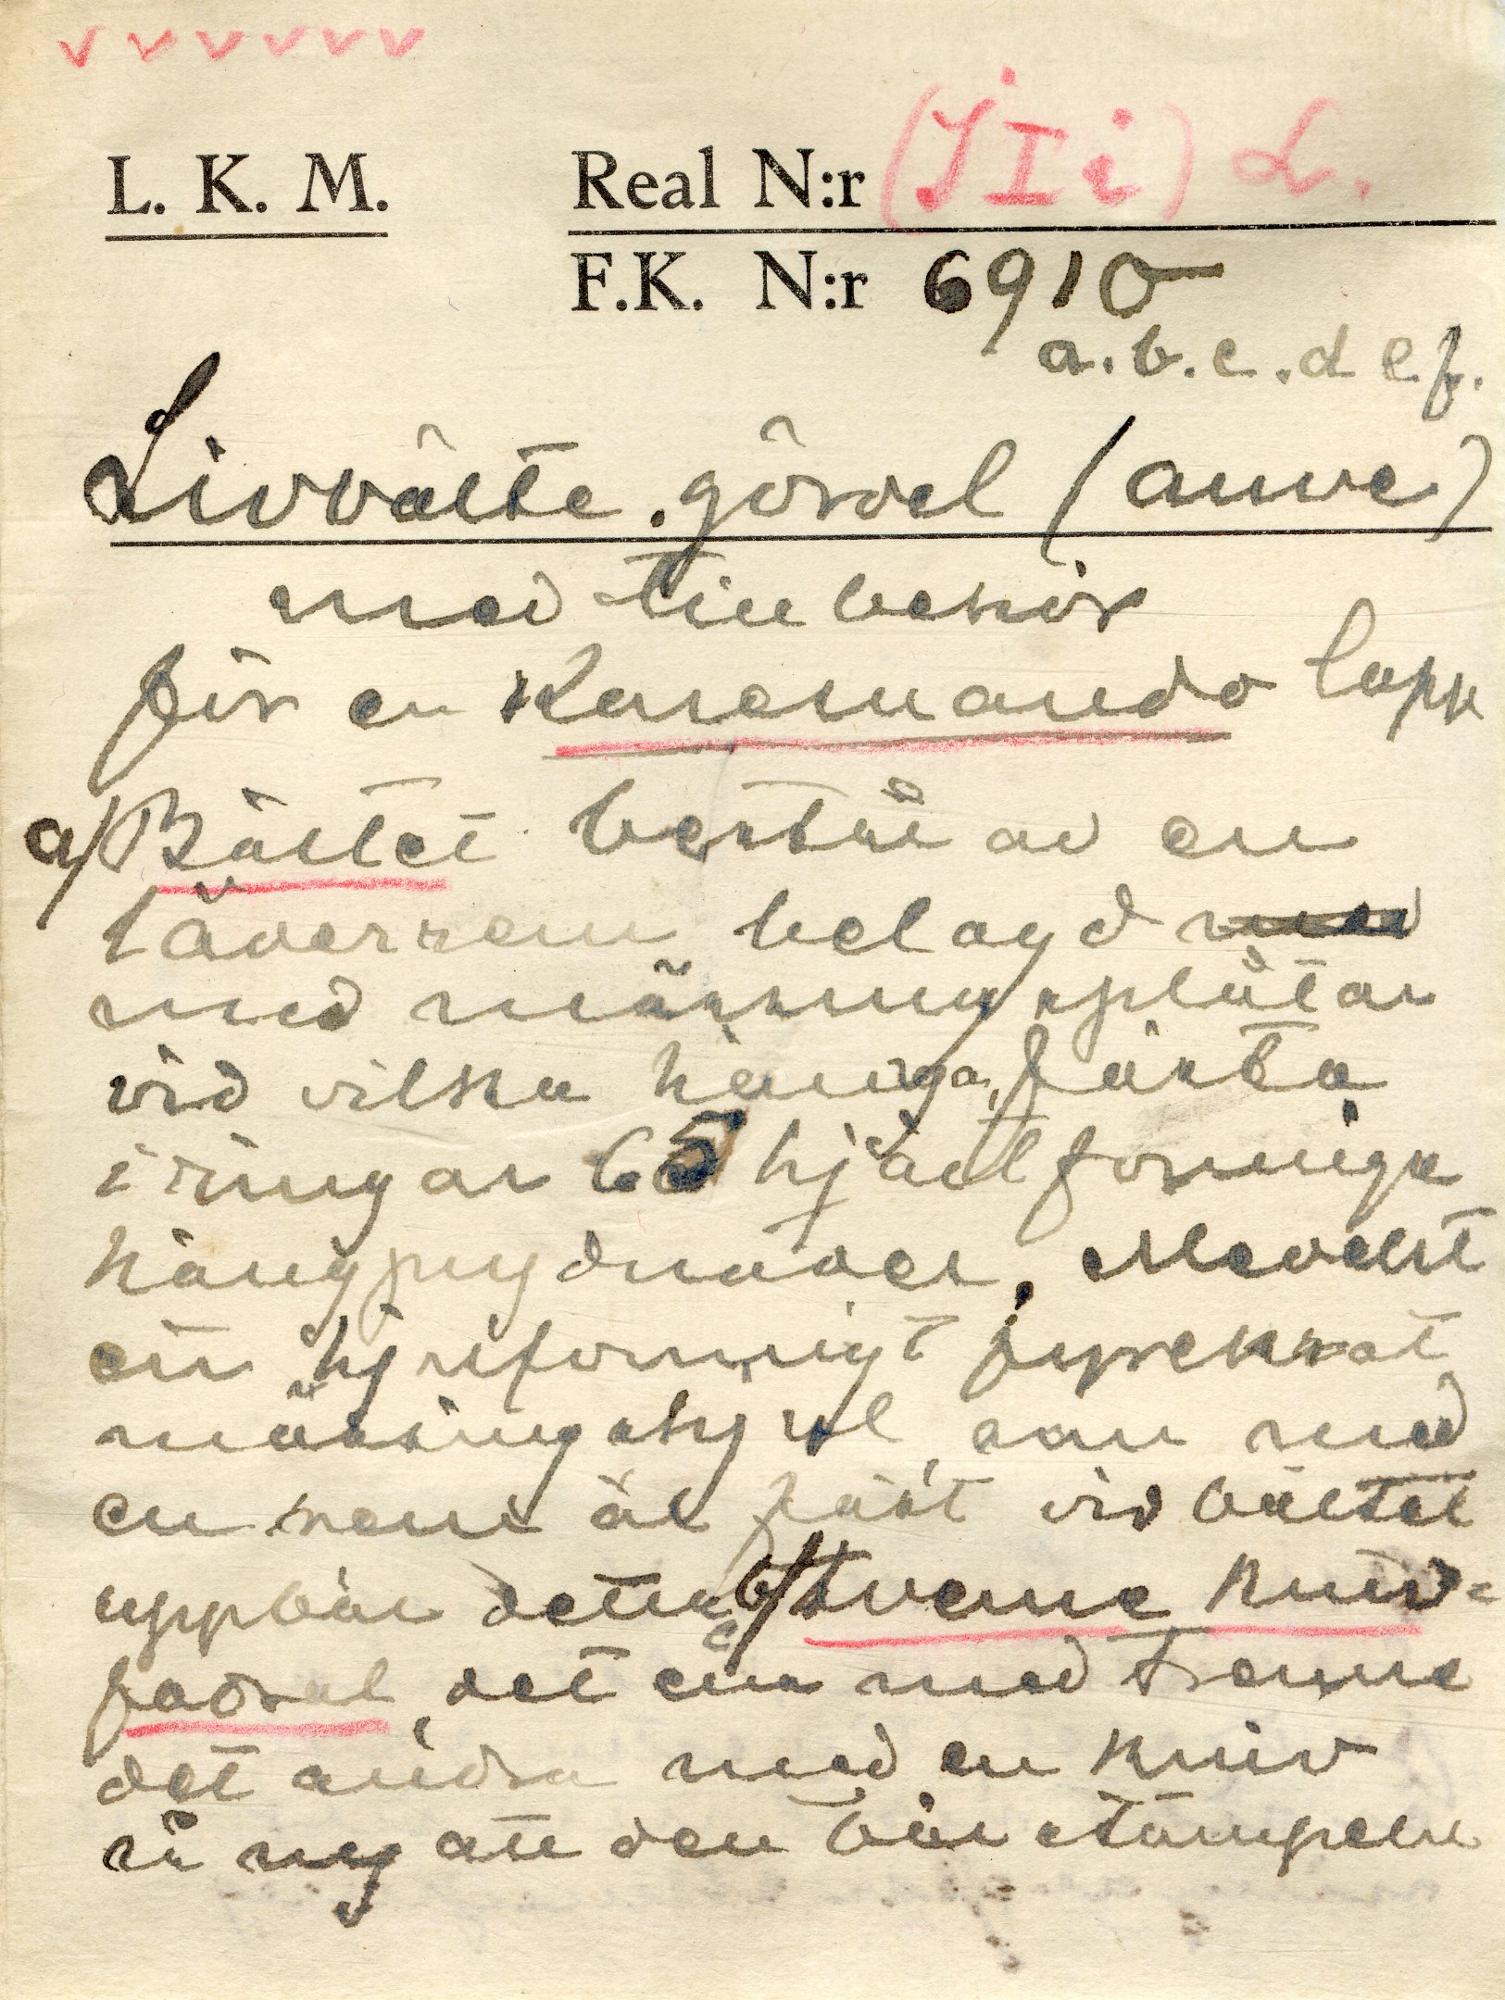 v v v v v v
L. K. M. Real N:r (III i) L.
F.K. N:r 6910
a.b.c.d e.f.
Livbälte, gördel (auve)
med tillbehör
för en Karesuando lapp
a/ Bältet består av en
läderrem belagd med
med mässingsplåtar
vid vilka hänga fästa
i ringar 65 hjärtformiga
hängprydnader. Medelst
ett hjulformigt
mässingshjul, som med
en rem är fäst vid bältet
uppbär detta b/ tvenne kniv-
fodral, det ena med trenne
det andra med en kniv
så ny att den bär stämpeln